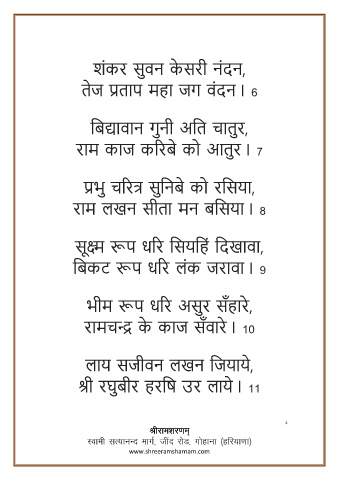 शंकर सुवन केसरी नंदन,
तेज प्रताप महा जग वंदन। 6
बिद्यावान गुनी अति चातुर,
राम काज करिबे को आतुर। 7
प्रभु चरित्र सुनिबे को रसिया,
राम लखन सीता मन बसिया। 8
सूक्ष्म रूप धरि सियहिं दिखावा,
बिकट रूप धरि लंक जरावा। 9
भीम रूप धरि असुर सँहारे,
रामचन्द्र के काज सँवारे। 10
लाय सजीवन लखन जियाये,
श्री रघुबीर हरषि उर लाये। 11
4
श्रीरामशरणम्
स्वामी सत्यानन्द मार्ग, जींद रोड, गोहाना (हरियाणा)
www.shreeramshamam.com